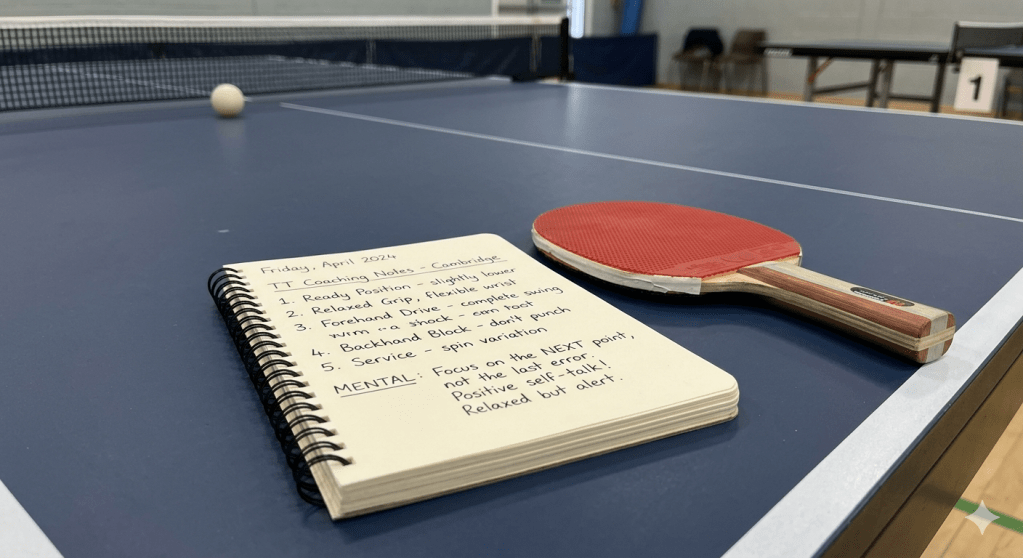 Friday, April 2024
TT Coaching Notes - Cambridge
1. Ready Position - slightly lower
2. Relaxed Grip, flexible wrist
3. Forehand Drive - complete swing
a shock - can
4. Backhand Block - don't punch
5. Service - spin variation
MENTAL: Focus on the NEXT point,
not the last error.
Positive self-talk!
Relaxed but alert.
1